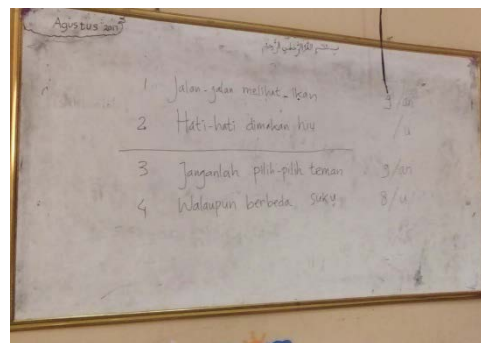 Agustus 2017
بسم الله الرحمن الرحيم
1 Jalan-jalan melihat ikan 9/an
2 Hati-hati dimakan hiu /u
3 Janganlah pilih-pilih teman 9/an
4 Walaupun berbeda suku 8/u